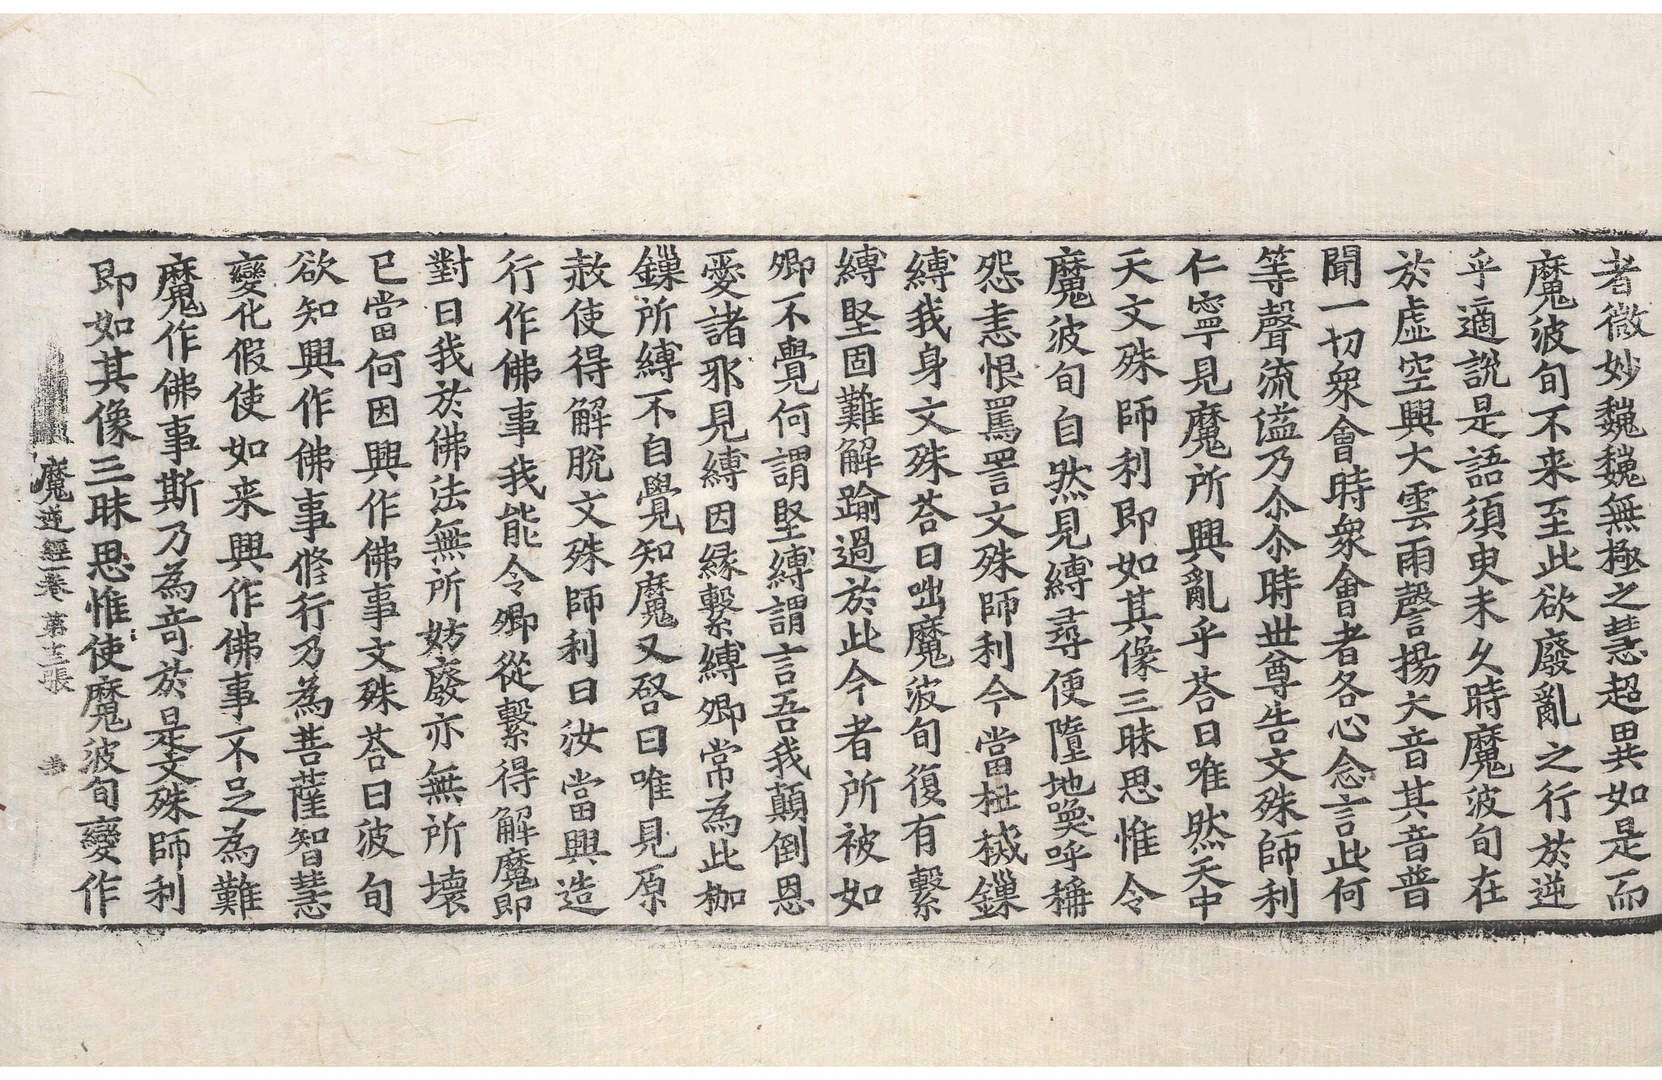 者微妙巍巍無極之慧超異如是而
魔波旬不来至此欲廢亂之行於逆
乎適說是語須臾未久時魔波旬在
於虛空興大雲雨謦揚大音其音普
聞一切衆會時衆會者各心念言此何
等聲流溢乃尒尒時世尊告文殊師利
仁寧見魔所興亂乎荅曰唯然天中
天文殊師利即如其像三昧思惟令
魔波旬自然見縛尋便墮地㘁呼稱
怨恚恨罵詈文殊師利今當杻械鏁
縛我身文殊荅曰咄魔波旬復有繫
縛堅固難解踰過於此今者所被如
卿不覺何謂堅縛謂言吾我顛倒恩
愛諸邪見縛因緣繫縛卿常為此枷
鏁所縛不自覺知魔又啓曰唯見原
赦使得解脫文殊師利曰汝當興造
行作佛事我能令卿從繫得解魔即
對曰我於佛法無所妨廢亦無所壞
已當何因興作佛事文殊荅曰波旬
欲知興作佛事修行乃為菩薩智慧
變化假使如来興作佛事不足為難
魔作佛事斯乃為奇於是文殊師利
即如其像三昧思惟使魔波旬變作
魔逆經一卷 第十二張